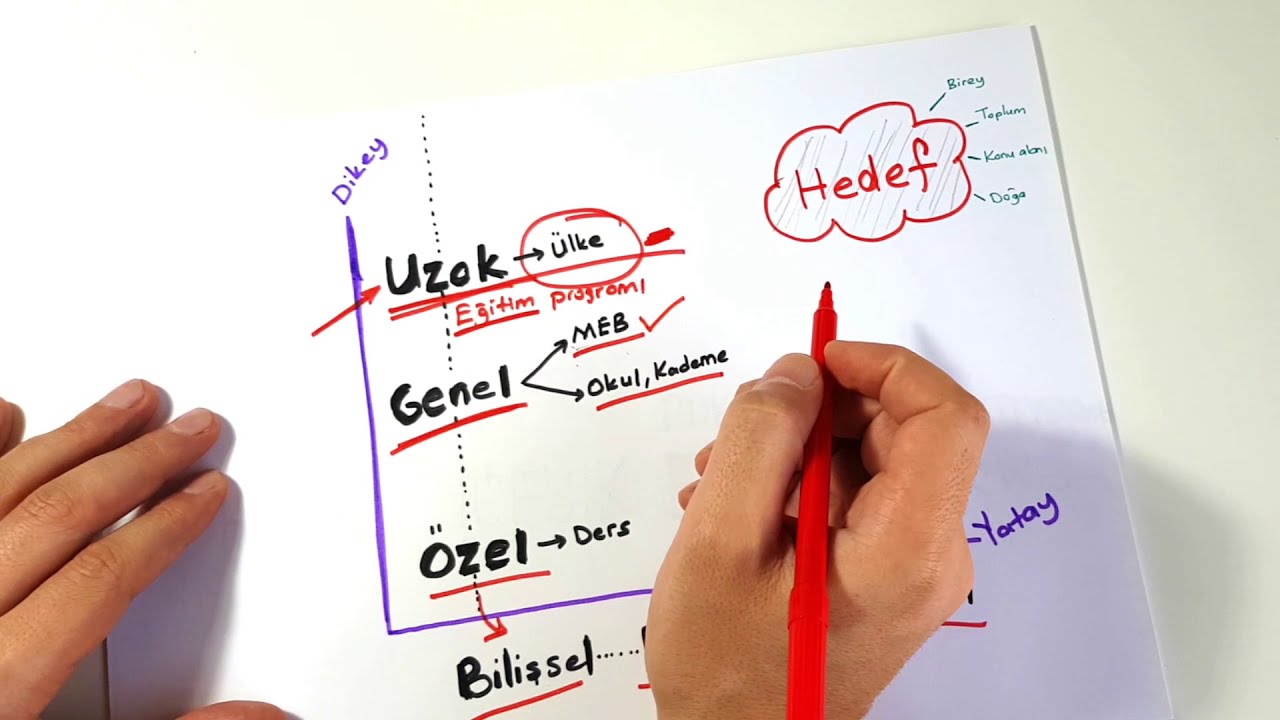 Birey
Toplum
Konu alanı
Doğa
Hedef
Dikey
Uzak → Ülke
Eğitim programı
Genel
MEB ✓
Okul, Kademe
Özel → Ders
Yatay
Bilişsel ......